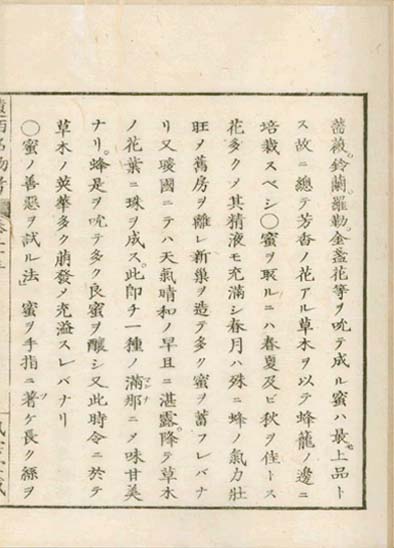 薔薇。鈴蘭。羅勒。金盞花等ヲ吮テ成ル蜜ハ最上品ト
ス故ニ總テ芳香ノ花アル草木ヲ以テ蜂籠ノ邊ニ
培栽スベシ〇蜜ヲ取ルニハ春夏及ビ秋ヲ佳トス
花多クメ其精液モ充滿シ春月ハ殊ニ蜂ノ氣力壯
旺ヲ舊房ヲ離レ新巢ヲ造テ多ク蜜ヲ蓄フレバナ
リ又暖國ニテハ天氣晴和ノ早旦ニ湛露。降テ草木
ノ花葉ニ珠ヲ成ス。此卽チ一種ノ滿那ニメ味甘美
ナリ。蜂是ヲ吮テ多ク良蜜ヲ釀シ又此時令ニ於テ
草木ノ英華多ク萠發メ充溢スレバナリ
〇蜜ノ善惡ヲ試ル法」蜜ヲ手指ニ著ケ長ク絲ヲ